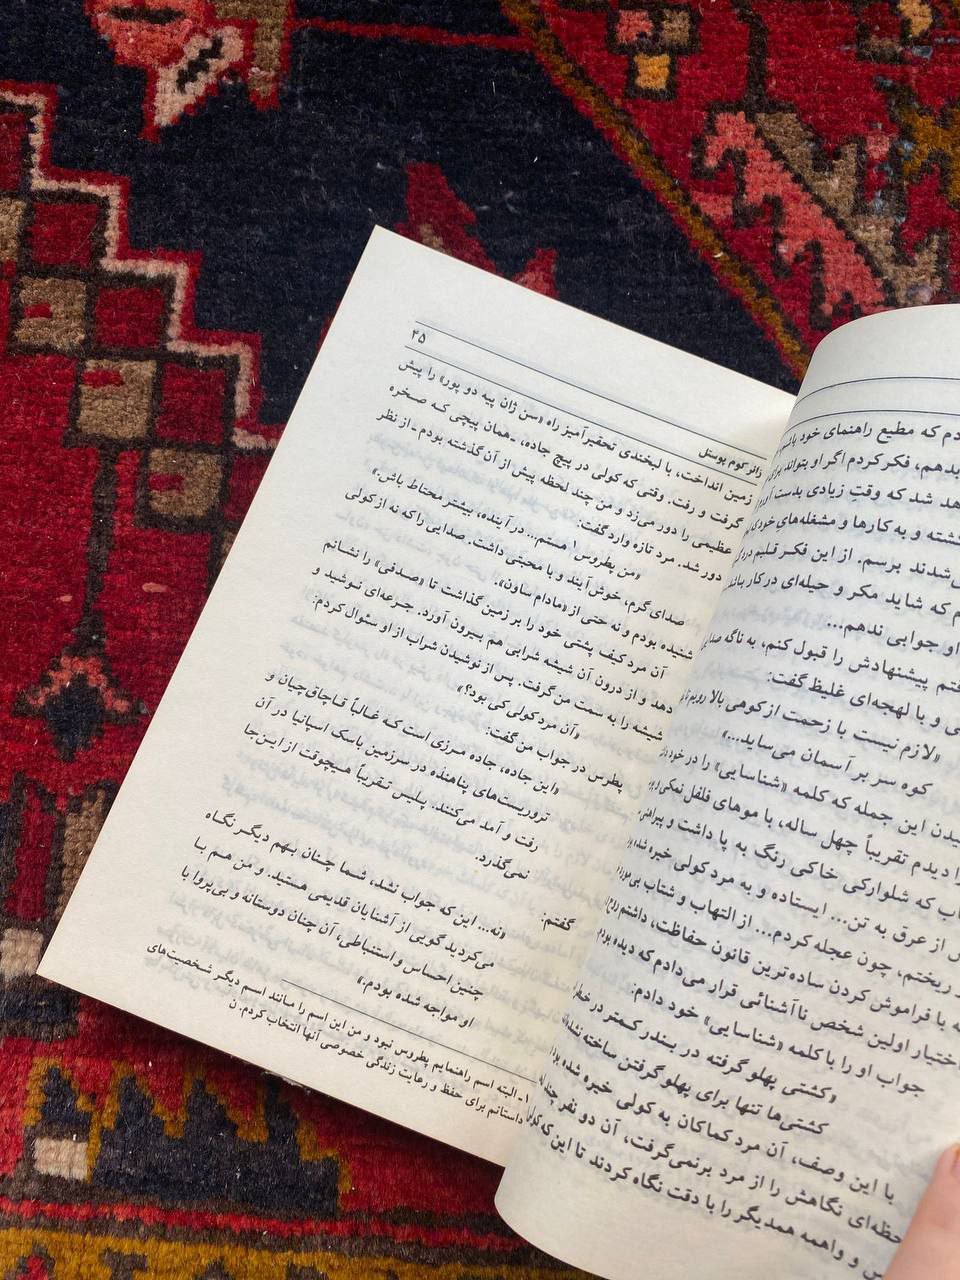 دم که مطیع راهنمای خود
بدهم، فکر کردم اگر او بتواند،
هد شد که وقتِ زیادی بدست
شته و به کارها و مشغله‌های خود که
شدند برسم. از این فکر قلبم
م که شاید مکر و حیله‌ای در کار باشد
او جوابی ندهم...
فتم پیشنهادش را قبول کنم، به ناگه
ی و با لهجه‌ای غلیظ گفت:
«لازم نیست با زحمت از کوهی بالا رویم
کوه سر بر آسمان می‌ساید...»
یدن این جمله که کلمه «شناسایی» را در خود
را دیدم تقریباً چهل ساله، با موهای فلفل نمکی
ب که شلوارکی خاکی رنگ به پا داشت و پیراهنی
س از عرق به تن... ایستاده و به مرد کولی خیره شده
ر ریختم، چون عجله کردم... از التهاب و شتاب بی‌مورد
ه با فراموش کردن ساده‌ترین قانون حفاظت، داشتم
ختیار اولین شخص ناآشنائی قرار می‌دادم که دیده بودم
جواب او را با کلمه «شناسایی» خود دادم:
«کشتی پهلو گرفته در بندر کمتر در خطر
کشتی‌ها تنها برای پهلو گرفتن ساخته نشده‌اند
با این وصف، آن مرد کماکان به کولی خیره شده بود
حظه‌ای نگاهش را از مرد برنمی‌گرفت، آن دو نفر چند
س و واهمه همدیگر را با دقت نگاه کردند تا این که کولی
زائر کوم پوستل ۲۵
زمین انداخت، با لبخندی تحقیرآمیز راه «سن ژان پیه دو پور» را پیش
گرفت و رفت. وقتی که کولی در پیچ جاده، ـ همان پیچی که صخره
عظیمی را دور می‌زد و من چند لحظه پیش از آن گذشته بودم ـ از نظر
دور شد. مرد تازه وارد گفت:
«من پطروس۱ هستم... در آینده، بیشتر محتاط باش.»
صدای گرم، خوش آیند و با محبتی داشت. صدایی را که نه از کولی
شنیده بودم و نه حتی از «مادام ساون».
آن مرد کیف پشتی خود را بر زمین گذاشت تا «صدفی» را نشانم
دهد و از درون آن شیشه شرابی هم بیرون آورد. جرعه‌ای نوشید و
شیشه را به سمت من گرفت. پس از نوشیدن شراب از او سئوال کردم:
«آن مرد کولی کی بود؟»
پطرس در جواب من گفت:
«این جاده، جاده مرزی است که غالباً قاچاق‌چیان و
تروریست‌های پناهنده در سرزمین باسک اسپانیا در آن
رفت و آمد می‌کنند. پلیس تقریباً هیچوقت از این‌جا
نمی‌گذرد.
گفتم:
«نه... این که جواب نشد، شما چنان بهم دیگر نگاه
می‌کردید گویی از آشنایان قدیمی هستید. و من هم با
چنین احساس و استنباطی، آن چنان دوستانه و بی‌پروا با
او مواجه شده بودم.»
۱ـ البته اسم راهنمایم پطروس نبود و من این اسم را مانند اسم دیگر شخصیت‌های
داستانم برای حفظ و رعایت زندگی خصوصی آنها انتخاب کردم. ن